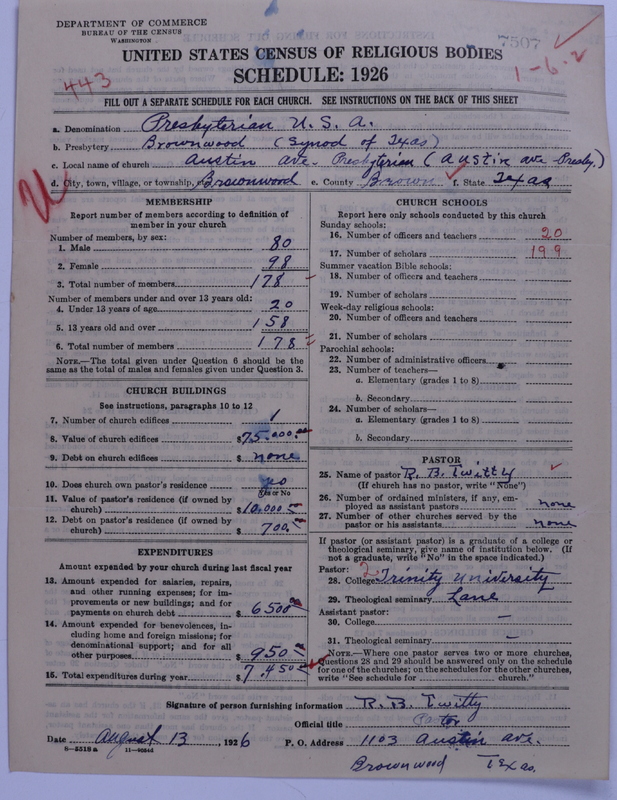 DEPARTMENT OF COMMERCE
BUREAU OF THE CENSUS
WASHINGTON
7507
UNITED STATES CENSUS OF RELIGIOUS BODIES
SCHEDULE: 1926
1-6-2
443
FILL OUT A SEPARATE SCHEDULE FOR EACH CHURCH. SEE INSTRUCTIONS ON THE BACK OF THIS SHEET
a. Denomination Presbyterian U.S.A.
b. Presbytery Brownwood (Synod of Texas)
c. Local name of church Austin Ave. Presbyterian (Austin ave Presby.)
d. City, town, village, or township, Brownwood e. County Brown f. State Texas
MEMBERSHIP
Report number of members according to definition of
member in your church
Number of members, by sex:
1. Male 80
2. Female 98
3. Total number of members 178
Number of members under and over 13 years old:
4. Under 13 years of age 20
5. 13 years old and over 158
6. Total number of members 178
NOTE.—The total given under Question 6 should be the
same as the total of males and females given under Question 3.
CHURCH BUILDINGS
See instructions, paragraphs 10 to 12
7. Number of church edifices 1
8. Value of church edifices $75.000.00
9. Debt on church edifices $ none
10. Does church own pastor's residence
Yes or No
11. Value of pastor's residence (if owned by
church) $10.000
12. Debt on pastor's residence (if owned by
church) $ 700.
EXPENDITURES
Amount expended by your church during last fiscal year
13. Amount expended for salaries, repairs,
and other running expenses; for im-
provements or new buildings; and for
payments on church debt $ 6500
14. Amount expended for benevolences, in-
cluding home and foreign missions; for
denominational support; and for all
other purposes $ 950
15. Total expenditures during year $ 7.450
CHURCH SCHOOLS
Report here only schools conducted by this church
Sunday schools:
16. Number of officers and teachers 20
17. Number of scholars 199
Summer vacation Bible schools:
18. Number of officers and teachers
19. Number of scholars
Week-day religious schools:
20. Number of officers and teachers
21. Number of scholars
Parochial schools:
22. Number of administrative officers
23. Number of teachers—
a. Elementary (grades 1 to 8)
b. Secondary
24. Number of scholars—
a. Elementary (grades 1 to 8)
b. Secondary
PASTOR
25. Name of pastor R. B. Twitty
(If church has no pastor, write "None")
26. Number of ordained ministers, if any, em-
ployed as assistant pastors none
27. Number of other churches served by the
pastor or his assistants none
If pastor (or assistant pastor) is a graduate of a college or
theological seminary, give name of institution below. (If
not a graduate, write "No" in the space indicated.)
Pastor: 2
28. College Trinity University
29. Theological seminary Lane
Assistant pastor:
30. College —
31. Theological seminary —
NOTE.—Where one pastor serves two or more churches,
Questions 28 and 29 should be answered only on the schedule
for one of the churches; on the schedules for the other churches,
write "See schedule for church."
Signature of person furnishing information R. B. Twitty
Official title Pastor
Date August 13, 1926 P. O. Address 1103 Austin ave.
8—5518a 11—9054d
Brownwood Texas.